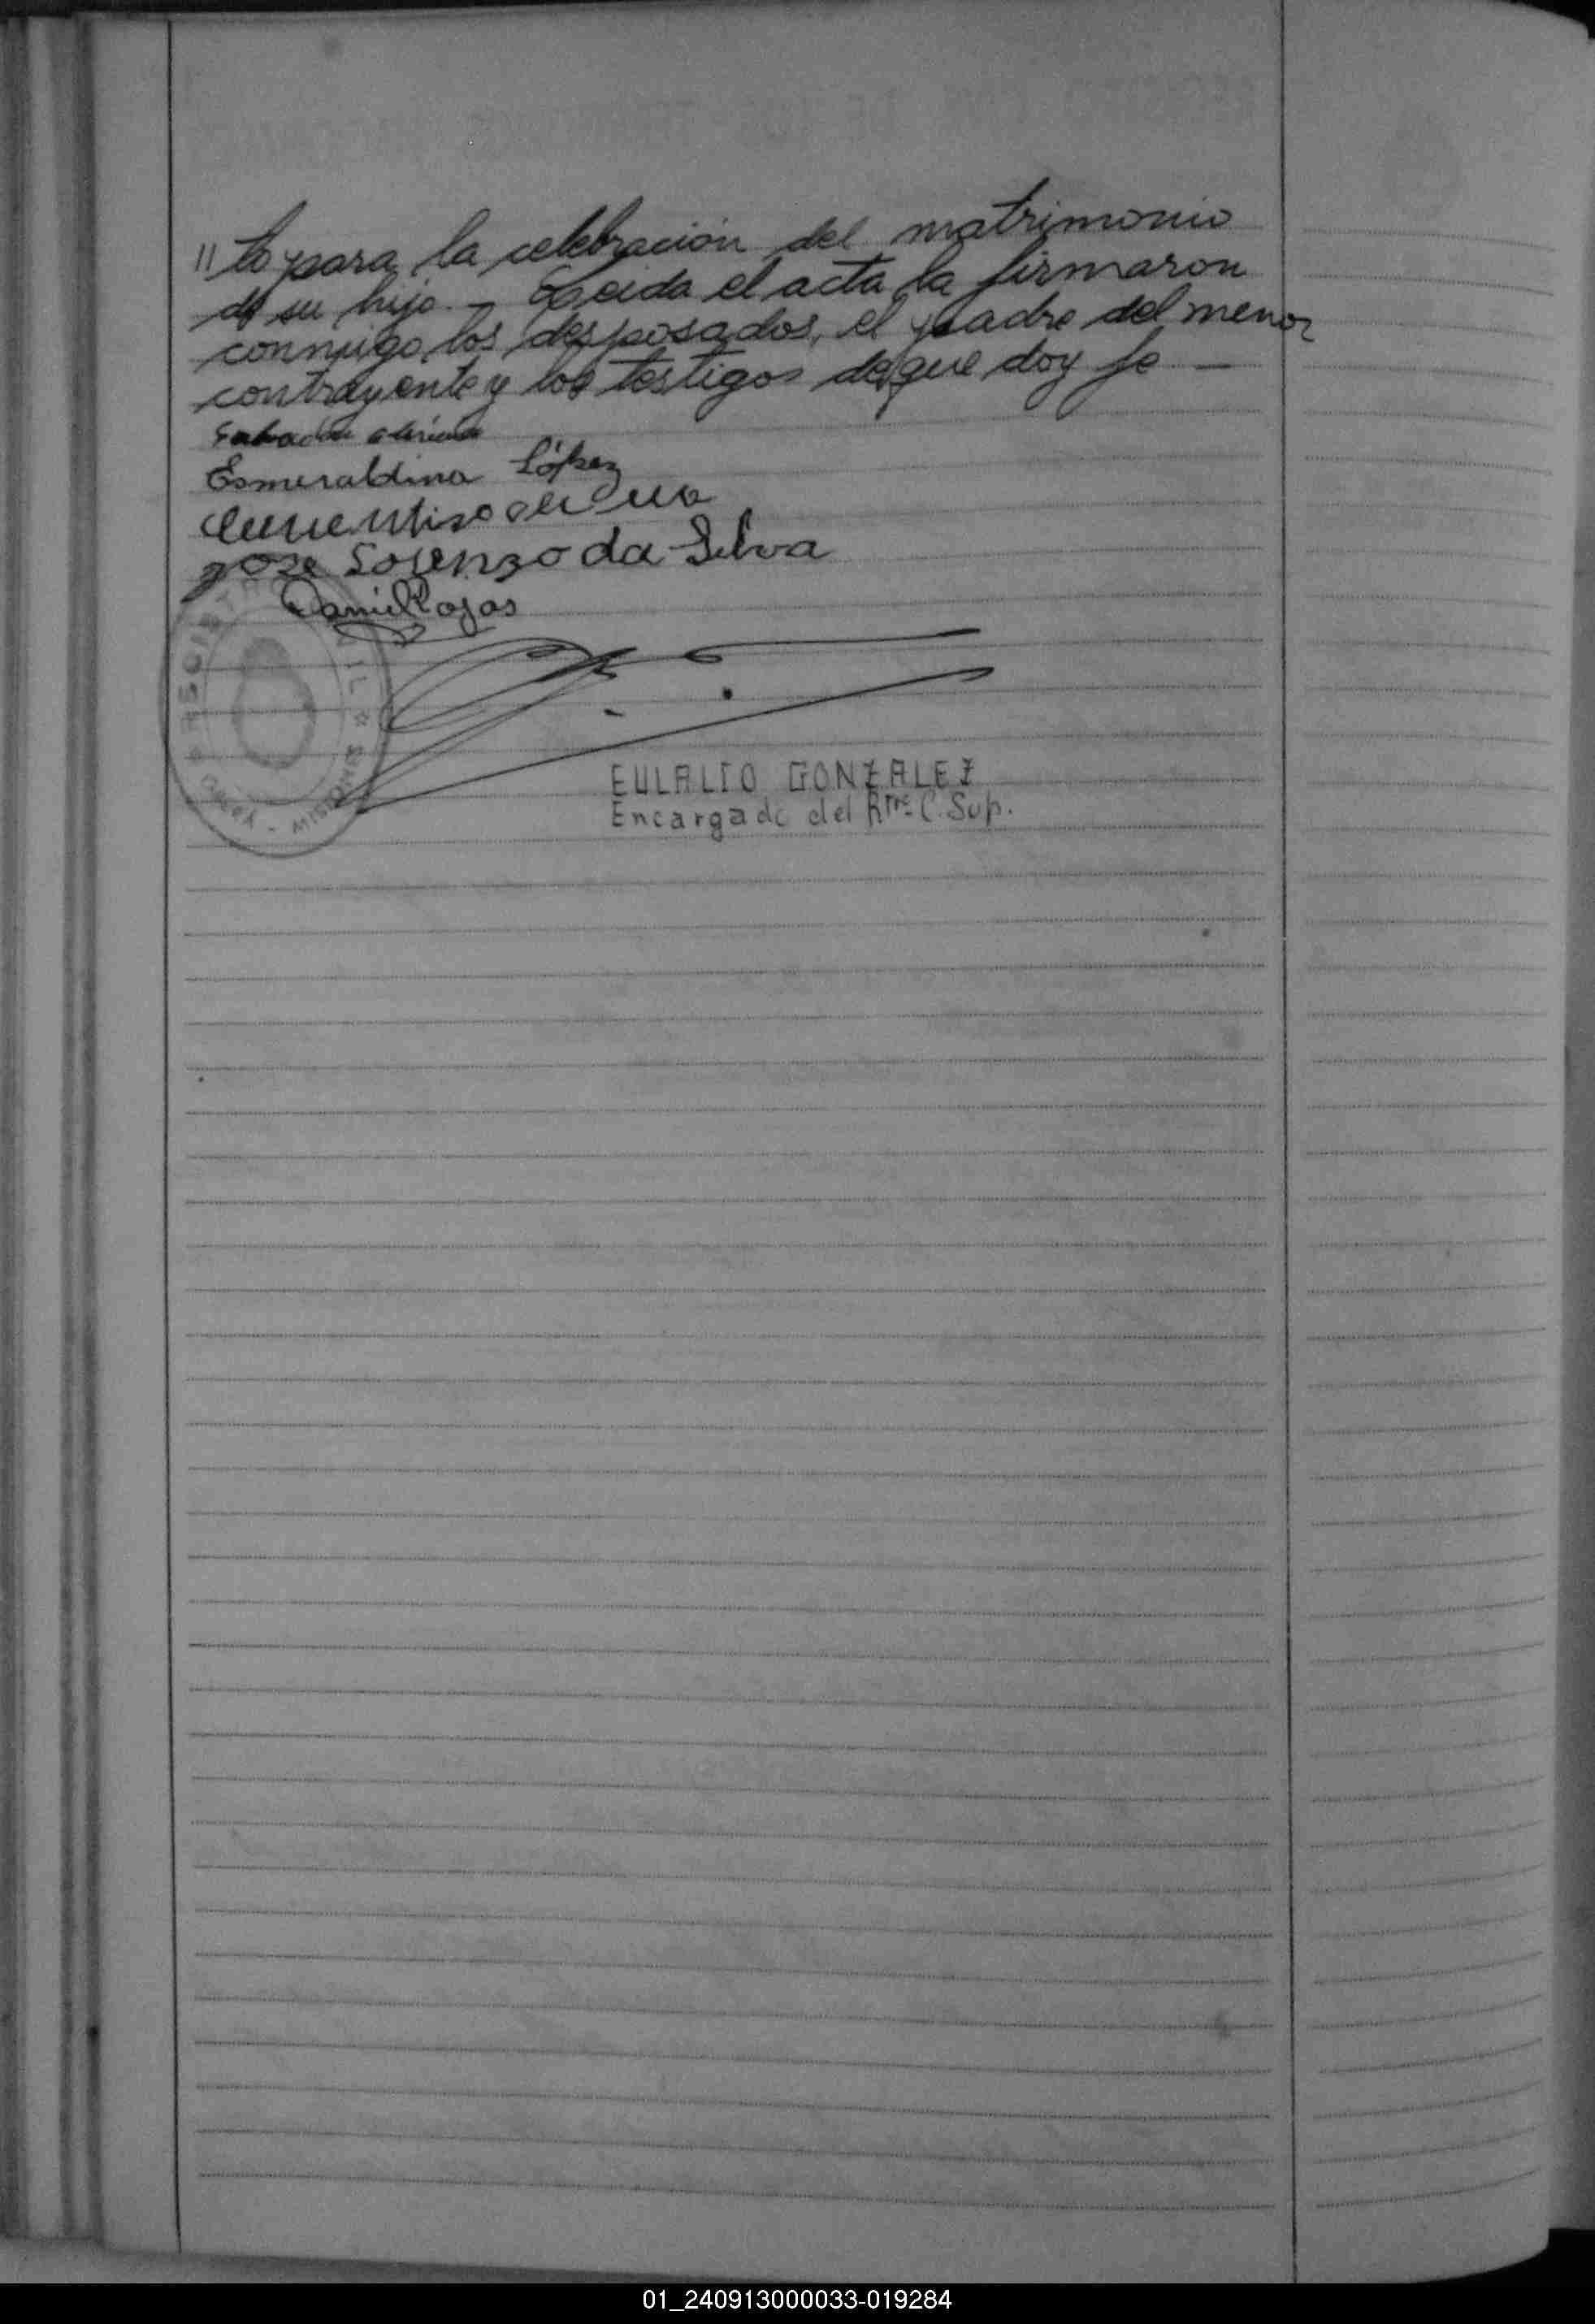 "to para la celebración del matrimonio
de su hijo.- Leida el acta la firmaron
conmigo, los desposados, el padre del menor
contrayente y los testigos de que doy fe —
Esmeraldina López
Jose Lorenzo da Silva
Daniel Rojas
REGISTRO CIVIL ☆ MISIONES
EULALIO GONZALEZ
Encargado del Rtro C. Sup.
01_240913000033-019284